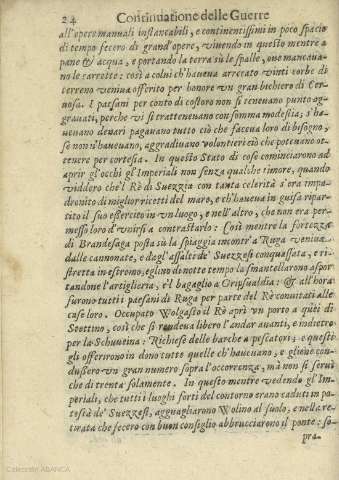 24 Continuatione delle Guerre
all'opere manuali instancabili, e continentissimi in poco spacio
di tempo fecero di grand'opere, viuendo in questo mentre a
pane & acqua, e portando la terra sù le spalle, oue mancaua-
no le carrette: così a colui ch'haueua arrecato vinti corbe di
terreno veniua offerito per honore vn gran bichiero di Cer-
uosa. I paesani per conto di costoro non si teneuano punto ag-
grauati, perche vi si tratteneuano con somma modestia; s'ha-
ueuano denari pagauano tutto ciò che faceua loro di bisogno,
se non n'haueuano, aggradiuano volontieri ciò che poteuano ot-
tenere per cortesia. In questo Stato di cose cominciarono ad
aprir gl'occhi gl'Imperiali non senza qualche timore, quando
viddero che'l Rè di Suezzia con tanta celerità s'era impa-
dronito di miglior ricetti del mare, e ch'haueua in guisa ripar-
tito il suo essercito in vn luogo, e nell'altro, che non era per-
messo loro d'vnirsi a contrastarlo: Così mentre la fortezza
di Brandesaga posta sù la spiaggia incontr'a Ruga veniua
dalle cannonate, e dagl'assalti de' Suezzesi conquassata, e ri-
stretta in estremo, eglino di notte tempo la smantellarono aspor-
tandone l'artiglieria, e'l bagaglio a Gripsualdia: & all'hora
furono tutti i paesani di Ruga per parte del Rè conuitati alle
case loro. Occupato Wolgasto il Rè aprì vn porto a quei di
Stettino, così che si rendeua libero l'andar auanti, e indietro
per la Schuuina: Richiese delle barche a pescatori; e questi
gli offerirono in dono tutte quelle ch'haueuano, e gliene con-
dussero vn gran numero sopra l'occorrenza, mà non si seruì
che di trenta solamente. In questo mentre vedendo gl'Im-
periali, che tutti i luoghi forti del contorno erano caduti in po-
testà de' Suezzesi, agguagliarono Wolino al suolo, e nella re-
tirata che fecero con buon consiglio abbrucciarono il ponte: so-
pra-
Colección ABANCA